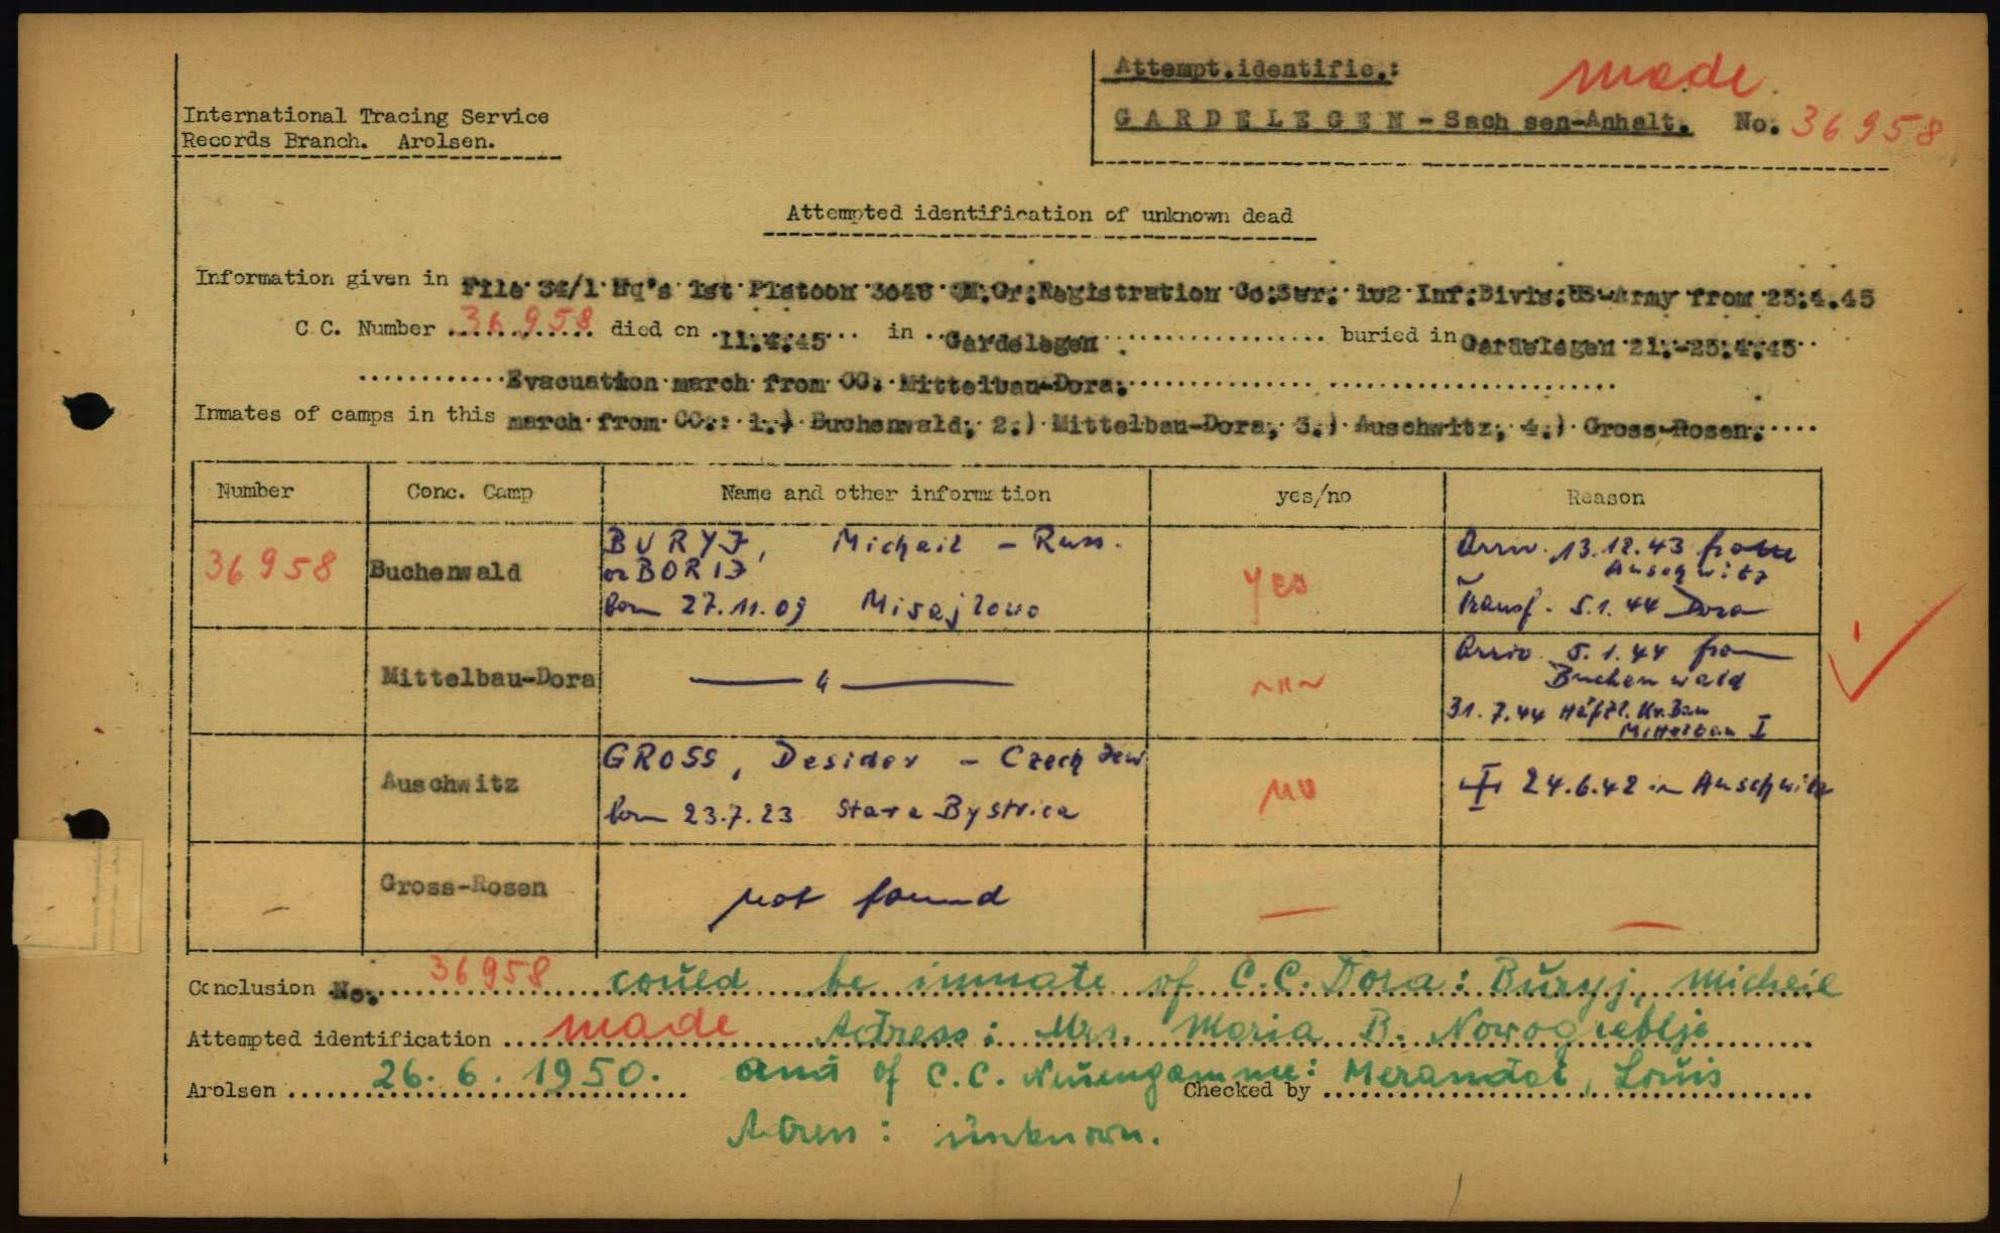 Attempt.identific.: made.
International Tracing Service
Records Branch. Arolsen.
GARDELEGEN - Sachsen-Anhalt. No. 36958
Attempted identification of unknown dead
Information given in File 34/1 Hq's 1st Platoon 3048 QM.Gr.Registration Co.Ser. 102 Inf.Divis.US-Army from 25.4.45
C.C. Number 36958 died on 11.4.45 in Gardelegen buried in Gardelegen 21.-25.4.45
Evacuation march from CC. Mittelbau-Dora.
Inmates of camps in this march from CC.: 1.) Buchenwald, 2.) Mittelbau-Dora, 3.) Auschwitz, 4.) Gross-Rosen.
Number Conc. Camp Name and other information yes/no Reason
36958 Buchenwald BURYJ, Michail - Russ. yes Arriv. 13.12.43 from
or BORIJ Auschwitz
born 27.11.09 Misajlowo Transf. 5.1.44 Dora
Mittelbau-Dora — " — — " — Arriv. 5.1.44 from
Buchenwald
31.7.44 Häftl. Kr.Bau
Mittelbau I
Auschwitz GROSS, Desider - Czech Jew no † 24.6.42 in Auschwitz
born 23.7.23 Stara Bystrica
— Gross-Rosen not found — —
Conclusion No. 36958 could be inmate of C.C. Dora: Buryj, Micheil
Attempted identification made Adress: Mrs. Maria B. Nowogreblje
Arolsen 26.6.1950. and of C.C. Neuengamme: Checked by Louis
Adress: unknown.